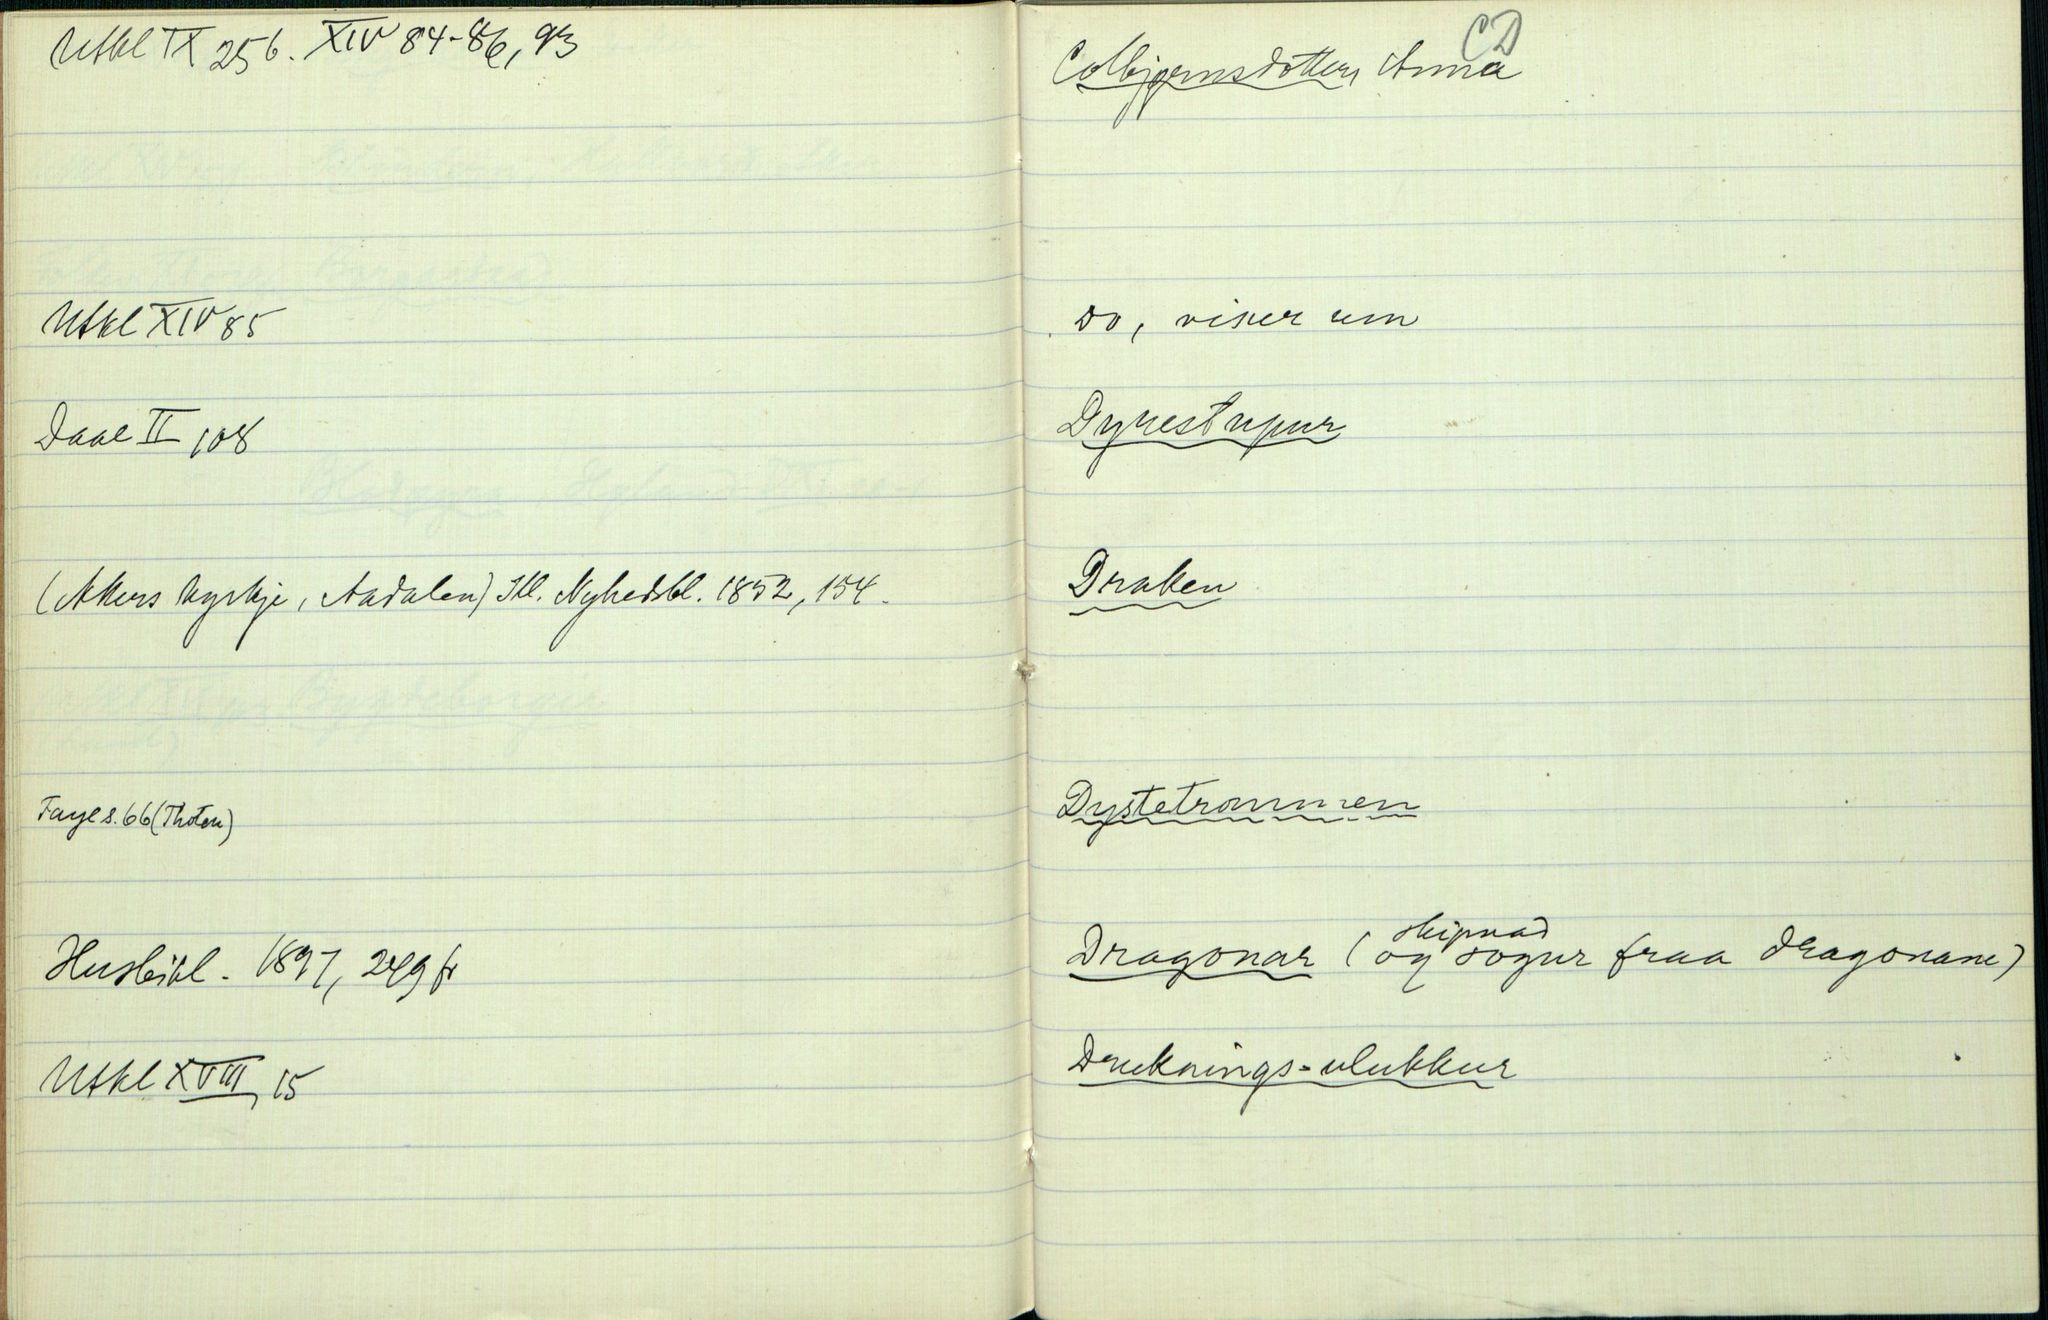 Utkl IX 256. XIV 84-86, 93
Utkl XIV 85
Daae II 108
(Akers kyrkje, Aadalen) Ill. Nyhedsbl. 1852, 154.
Faye s. 66 (Thoten)
Husbibl. 1897, 249 fr
Utkl XVIII, 15
CD
Colbjørnsdotter, Anna
Do, viser um
Dyrestupur
Draken
Dystetrommen
skipnad
Dragonar ( og sogur fraa dragonane)
Druknings-ulukkur